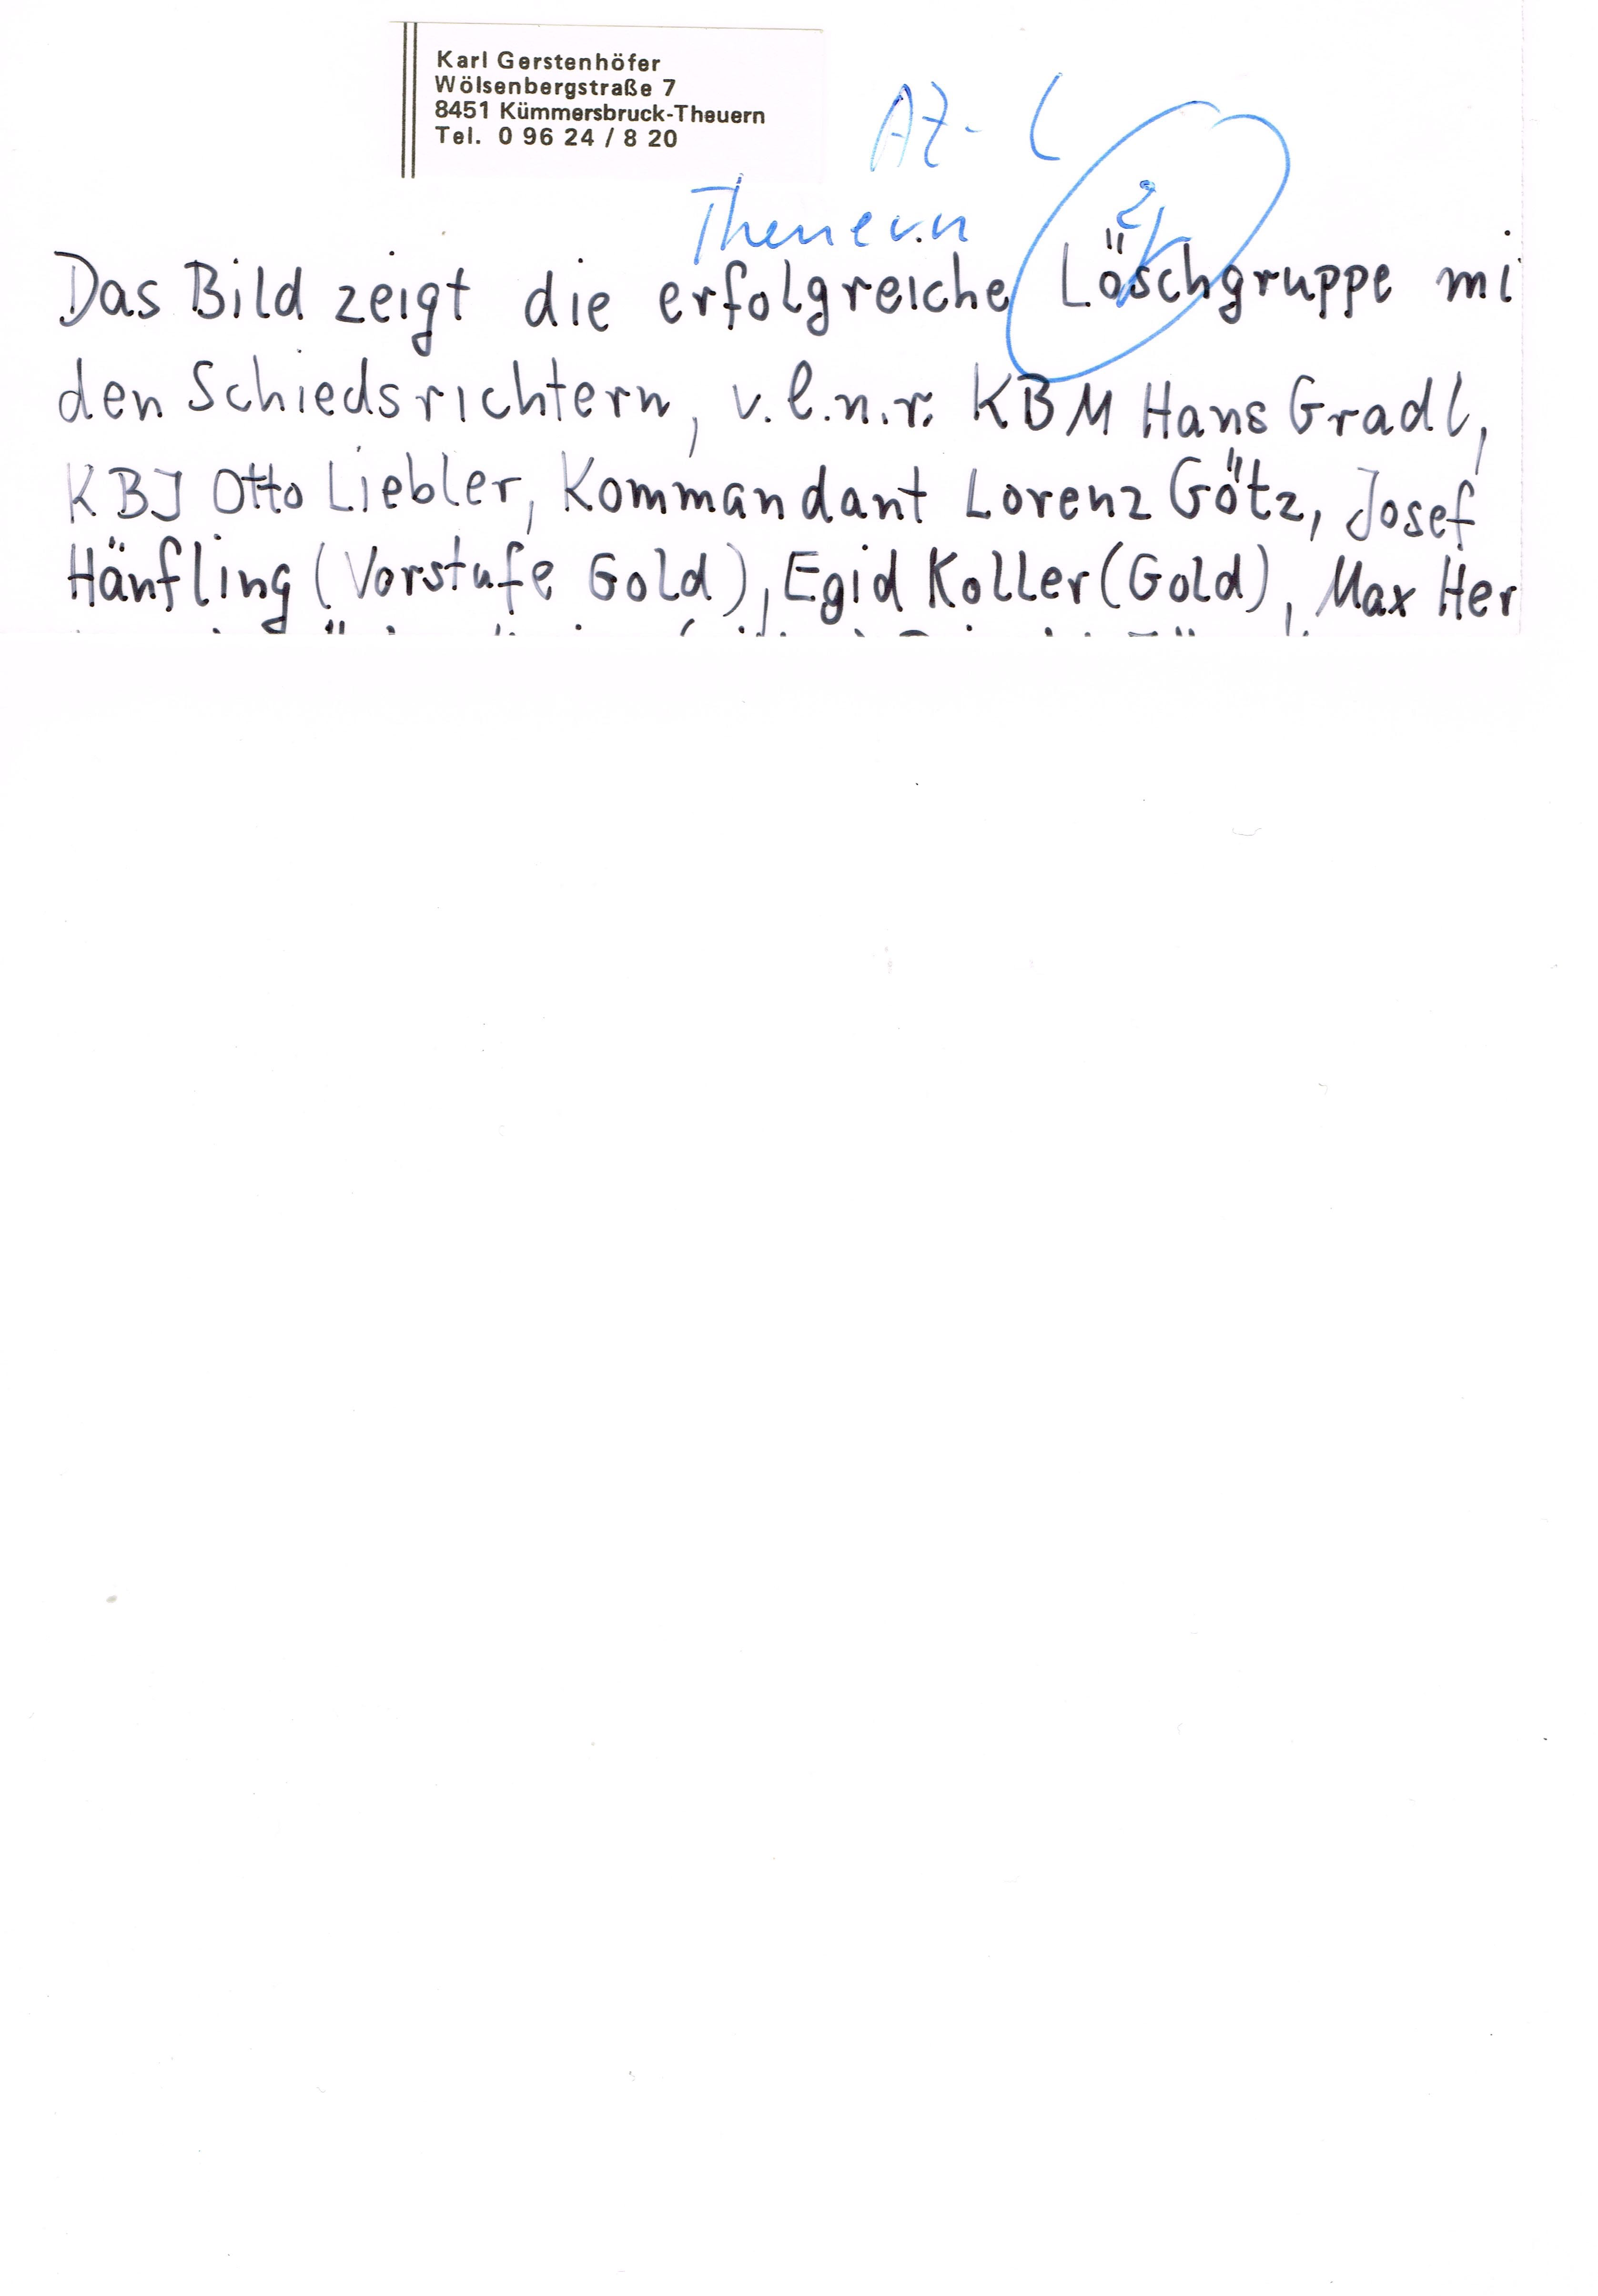 Karl Gerstenhöfer
Wölsenbergstraße 7
8451 Kümmersbruck-Theuern
Tel. 0 96 24 / 8 20
AZ-L
Theuern
Das Bild zeigt die erfolgreiche Löschgruppe mi
den Schiedsrichtern, v.l.n.r. KBM Hans Gradl,
KBJ Otto Liebler, Kommandant Lorenz Götz, Josef
Hänfling (Vorstufe Gold), Egid Koller (Gold), Max Her